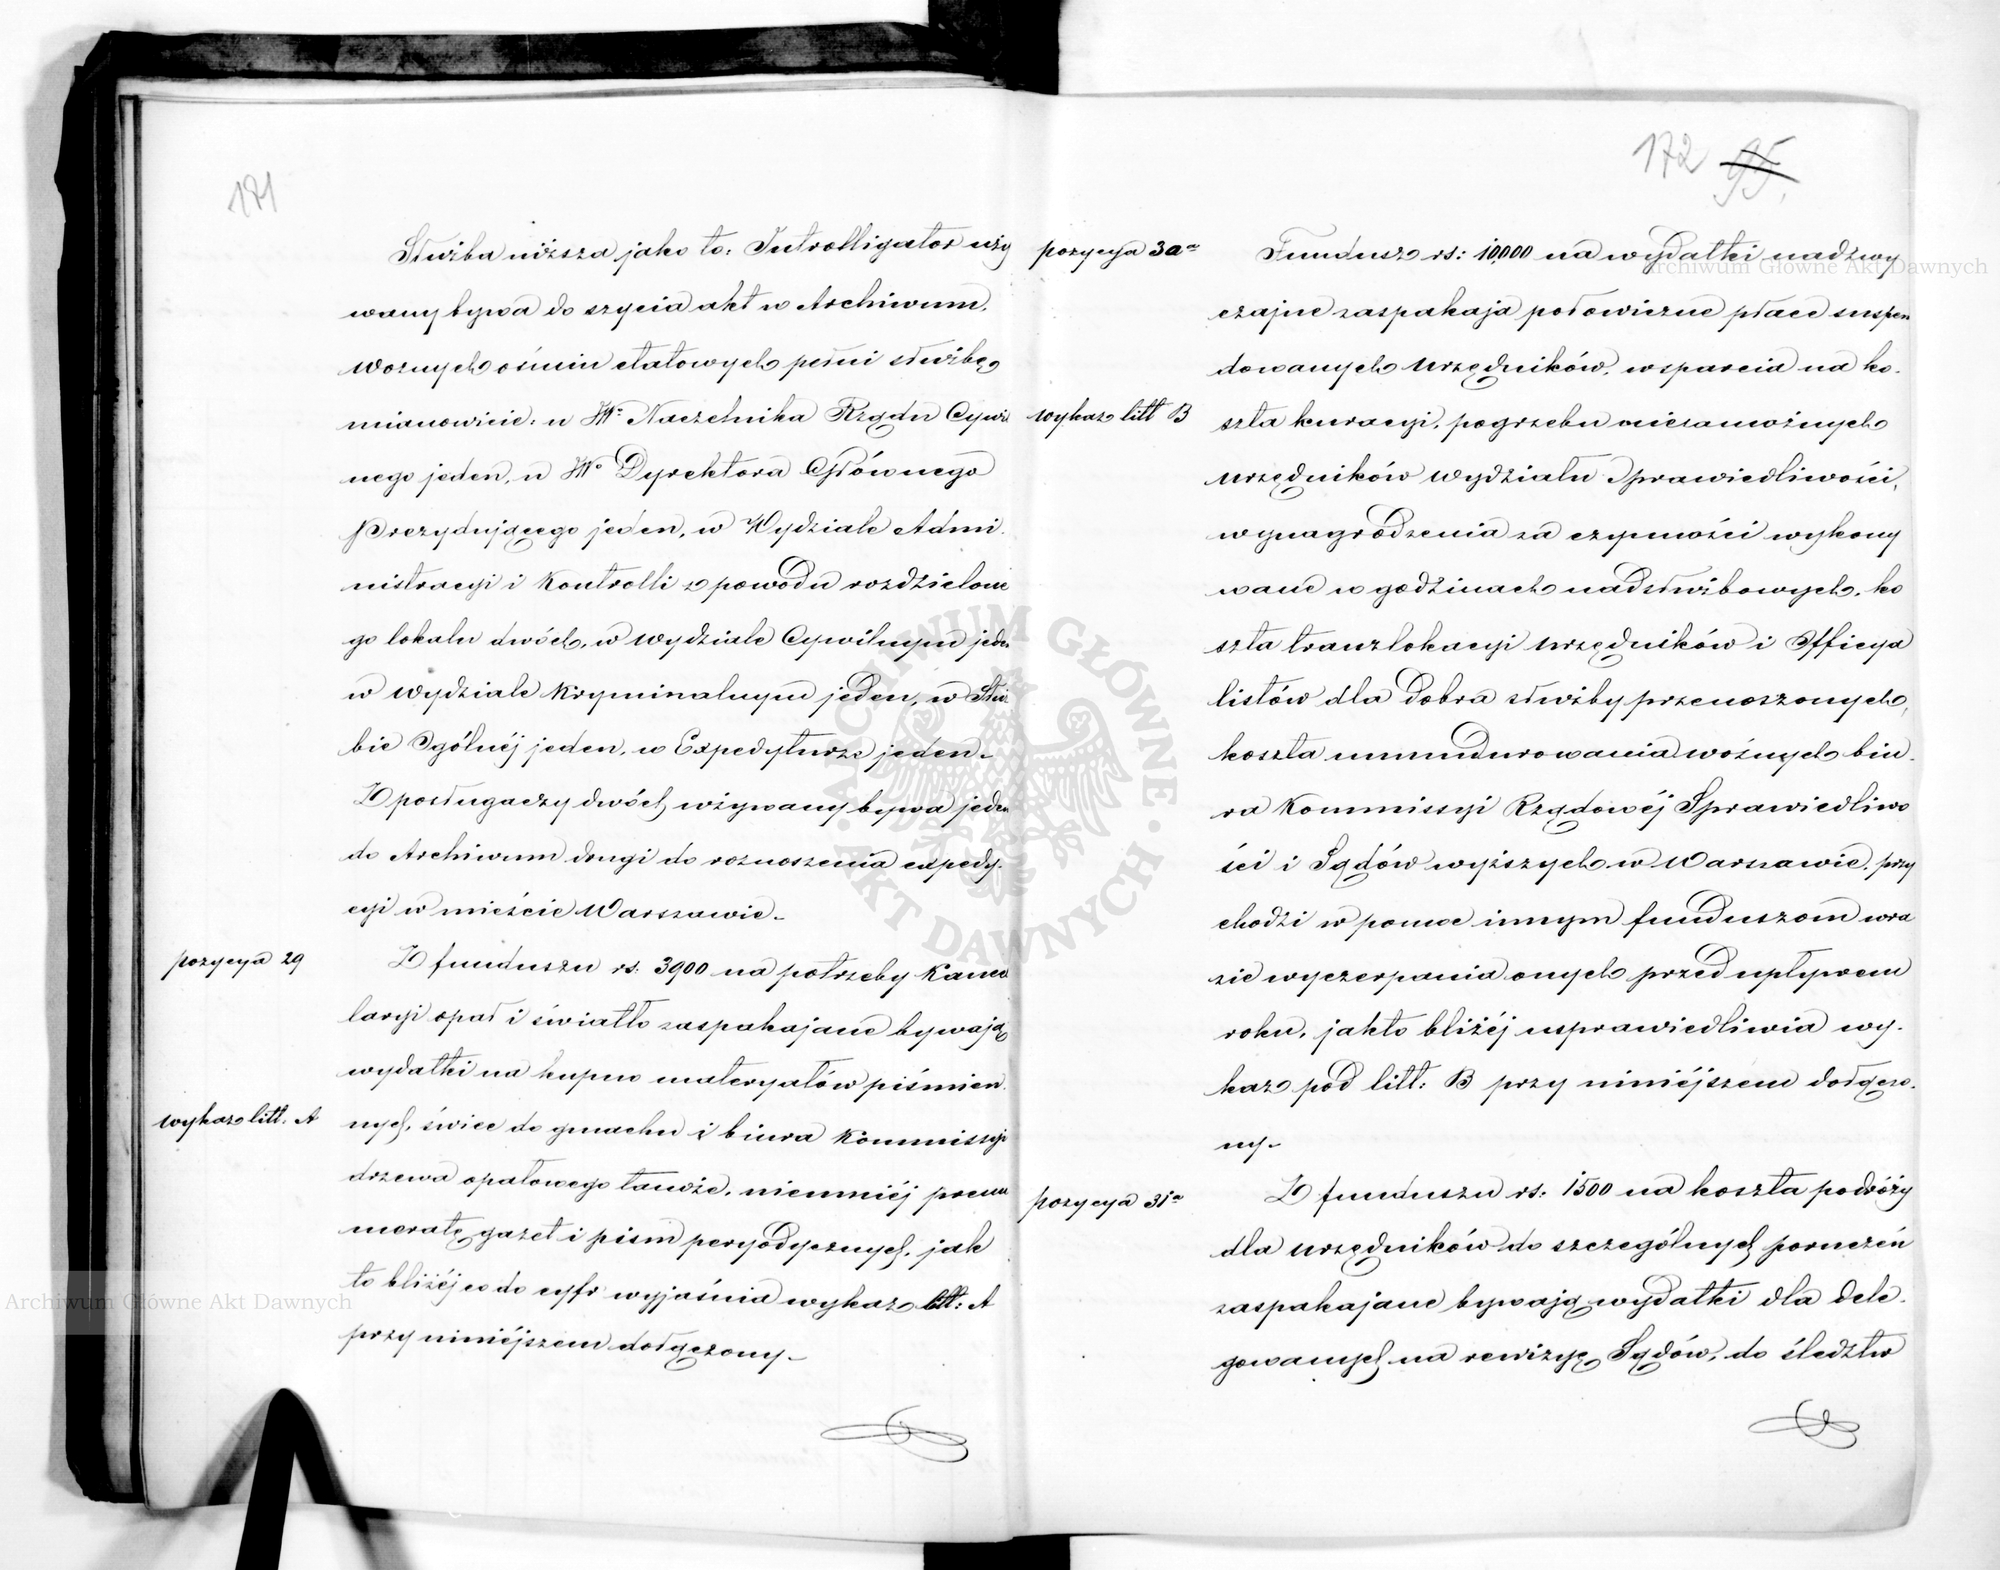 171
Służba niższa jako to: Introlligator uży
wany bywa do szycia akt w Archiwum.
Woznych ośmiu etatowych pełni służbę,
mianowicie: u JWo Naczelnika Rządu Cywil
nego jeden, u JWo Dyrektora Głównego
Prezydującego jeden, w Wydziale Admi-
nistracyi i Kontrolli z powodu rozdzielone
go lokalu dwóch, w Wydziale Cywilnym jeden
w Wydziale Kryminalnym jeden, w Służ
bie Ogólnéj jeden, w Expedyturze jeden.
Z posługaczy dwóch używany bywa jeden
do Archiwum drugi do roznoszenia expedy-
cyi w mieście Warszawie.
pozycya 29
Z funduszu rs. 3900 na potrzeby Kance
laryi opał i światło zaspakajane bywają
wydatki na kupno materyałów piśmien-
wykaz litt. A
nych, świec do gmachu i biura Kommissyi
drzewa opałowego tamże, niemniéj prenu
meratę gazet i pism peryodycznych, jak
to bliżéj co do cyfr wyjaśnia wykaz litt: A
przy niniéjszem dołączony.
172 95.
pozycya 30a
Fundusz rs: 10,000 na wydatki nadzwy
czajne zaspakaja połowiczne płace suspen
dowanych urzędników, wsparcia na ko-
wykaz litt B
szta kuracyi, pogrzebu niezamożnych
urzędników Wydziału Sprawiedliwości,
wynagrodzenia za czynności wykony
wane w godzinach nadsłużbowych, ko
szta tranzlokacyi urzędników i Officya
listów dla dobra służby przenoszonych,
koszta umundurowania woźnych biu-
ra Kommissyi Rządowéj Sprawiedliwo
ści i Sądów wyższych w Warszawie, przy
chodzi w pomoc innym funduszom w ra
zie wyczerpania onych przed upływem
roku, jak to bliżéj usprawiedliwia wy-
kaz pod litt: B przy niniéjszem dołączo-
ny.
pozycya 31a
Z funduszu rs: 1500 na koszta podróży
dla urzędników do szczególnych poruczeń
zaspakajane bywają wydatki dla dele-
gowanych na rewizyę Sądów, do śledztw
Archiwum Główne Akt Dawnych
Archiwum Główne Akt Dawnych
ARCHIWUM GŁÓWNE · AKT DAWNYCH ·